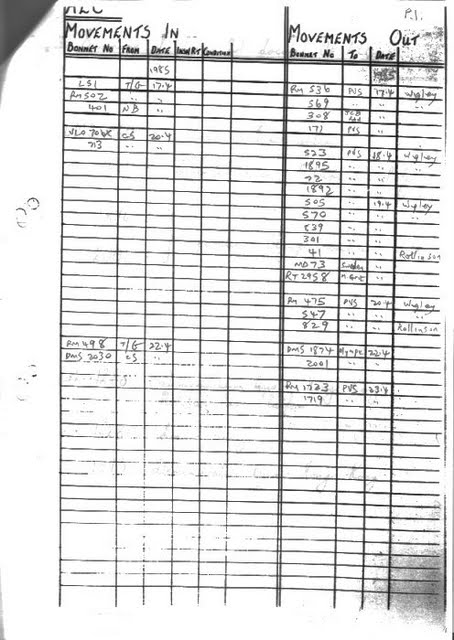 AEC
P.1.
MOVEMENTS IN
MOVEMENTS OUT
BONNET NO FROM DATE INW RT CONDITION
BONNET NO TO DATE
1985
1985
LS1 T/G 17.4
RM 536 PVS 17.4 Wigley
RM 502 " "
569 " "
401 NB "
308
171 PVS
20.4
713 " "
523 PVS 18.4 Wigley
1895 " " "
22 " "
1892 " "
505 " 19.4 Wigley
570 " " "
539 " "
301 " "
41 " " Rollinson
MD 73 "
RT 2958 "
RM 475 PVS 20.4 Wigley
547 " " "
829 " " Rollinson
RM 498 T/G 22.4
DMS 1874 22.4
DMS 2030 CS "
2001 " "
RM 1723 PVS 23.4
1719 " "